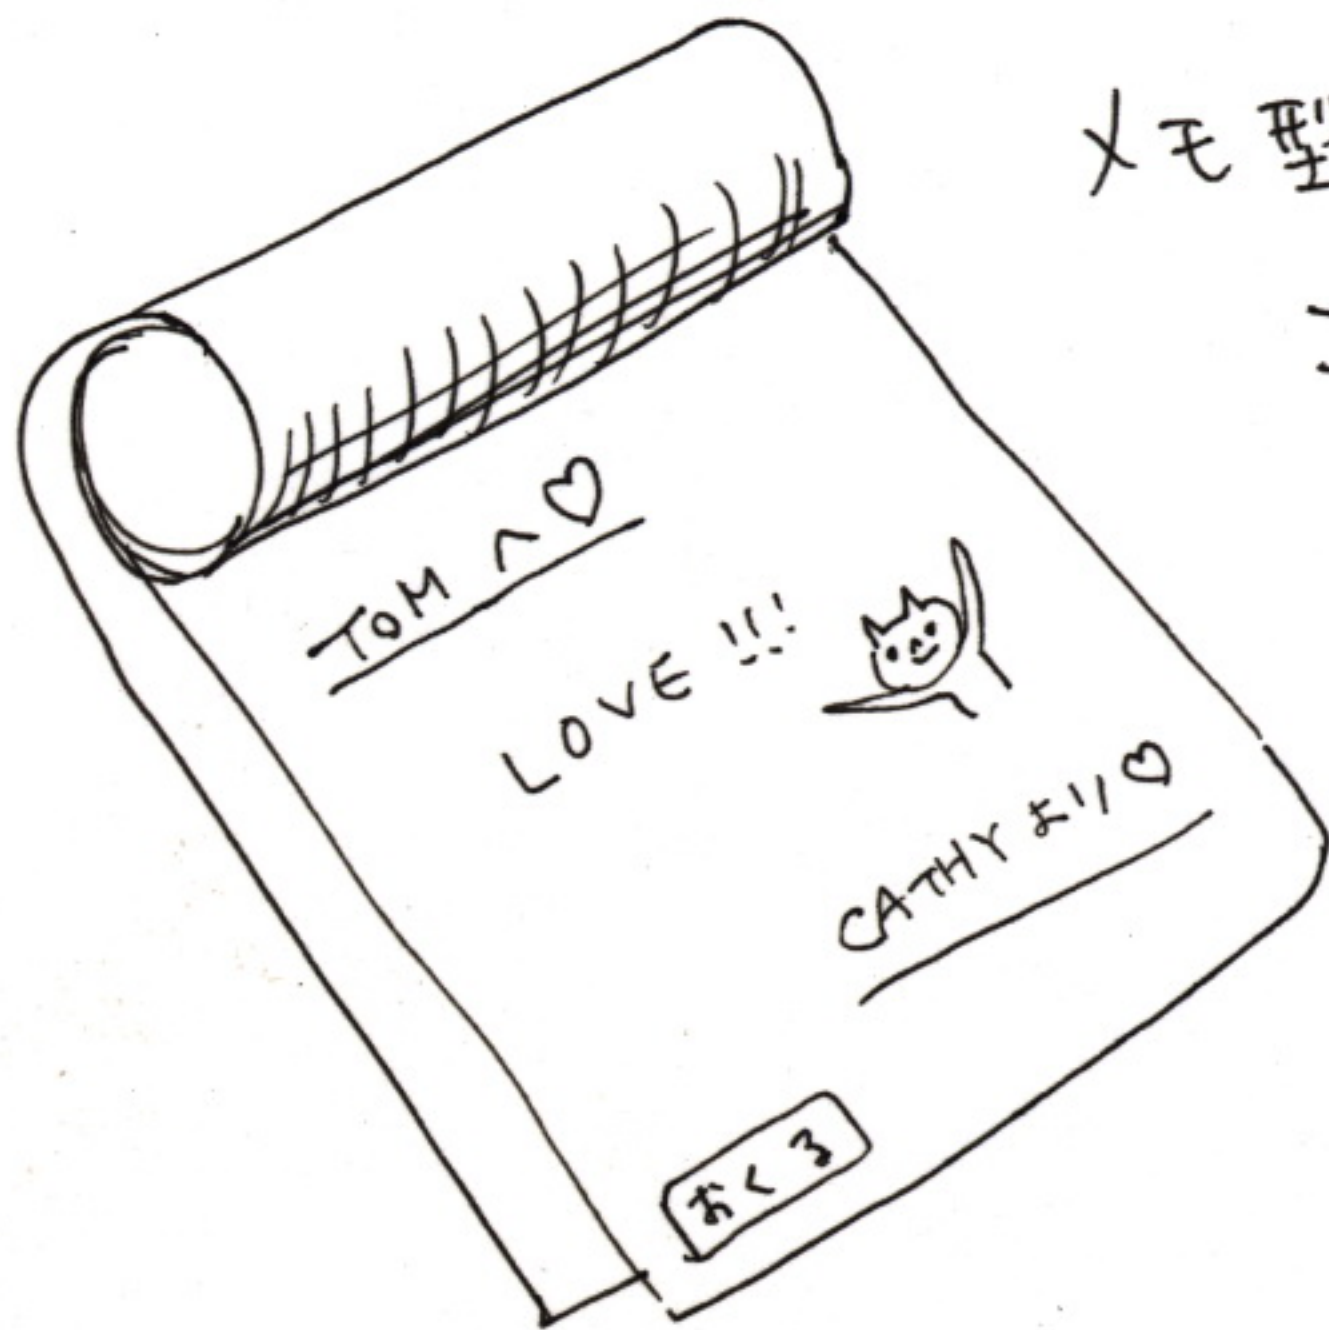 メモ型
TOM へ♡
LOVE !!!
CATHY より♡
おくる